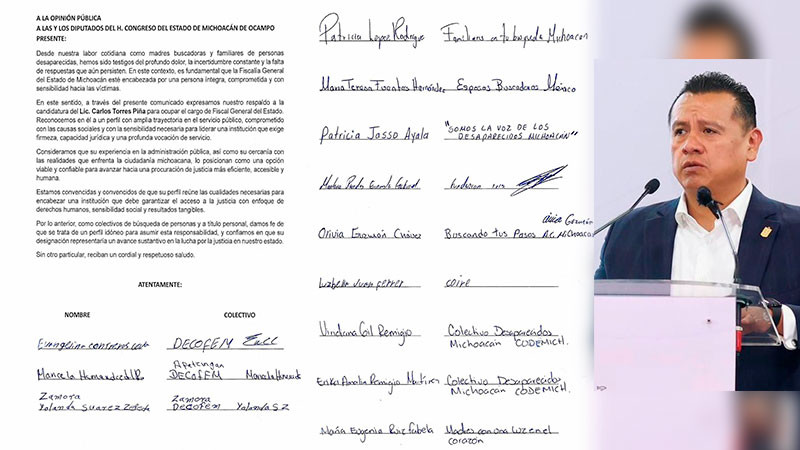 A LA OPINIÓN PÚBLICA
A LAS Y LOS DIPUTADOS DEL H. CONGRESO DEL ESTADO DE MICHOACÁN DE OCAMPO
PRESENTE:
Desde nuestra labor cotidiana como madres buscadoras y familiares de personas
desaparecidas, hemos sido testigos del profundo dolor, la incertidumbre constante y la
falta de respuestas que aún persisten. En este contexto, es fundamental que la Fiscalía General
del Estado de Michoacán esté encabezada por una persona íntegra, comprometida y con
sensibilidad hacia las víctimas.
En este sentido, a través del presente comunicado expresamos nuestro respaldo a la
candidatura del Lic. Carlos Torres Piña para ocupar el cargo de Fiscal General del Estado.
Reconocemos en él a un perfil con amplia trayectoria en el servicio público, comprometido
con las causas sociales y con la sensibilidad necesaria para liderar una institución que exige
firmeza, capacidad jurídica y una profunda vocación de servicio.
Consideramos que su experiencia en la administración pública, así como su cercanía con
las realidades que enfrenta la ciudadanía michoacana, lo posicionan como una opción
viable y confiable para avanzar hacia una procuración de justicia más eficiente, accesible y
humana.
Estamos convencidas y convencidos de que su perfil reúne las cualidades necesarias para
encabezar una institución que debe garantizar el acceso a la justicia con enfoque de
derechos humanos, sensibilidad social y resultados tangibles.
Por lo anterior, como colectivos de búsqueda de personas y a título personal, damos fe de
que se trata de un perfil idóneo para asumir esta responsabilidad, y confiamos en que su
designación representaría un avance sustantivo en la lucha por la justicia en nuestro estado.
Sin otro particular, reciban un cordial y respetuoso saludo.
ATENTAMENTE:
NOMBRE COLECTIVO
Evangelina Contreras DECOFEM
Apatzingan
Marcela DECOFEM Marcela
Zamora Zamora
Yolanda Suarez Decofem Yolanda S Z
Patricia Lopez Rodrigue Familias en tu búsqueda Michoacan
Maria Teresa Fuentes Hernández Esposas Buscadoras México
Patricia Jasso Ayala "SOMOS LA VOZ DE LOS
DESAPARECIDOS MICHOACÁN"
Olivia Guzmán Chávez Buscando tus Pasos A.C. Michoacan
Viridiana Gil Remigio Colectivo Desaparecidos
Michoacán CODEMICH.
Erika Amalia Remigio Martinez Colectivo Desaparecidos
Michoacán CODEMICH.
María Eugenia Ruiz Fabela Madres con una luz en el
corazón